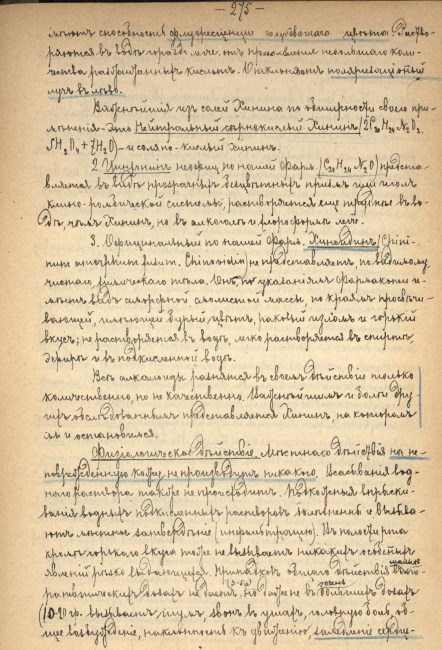 — 275 —
имеютъ способность флуоресценции голубоватаго цвѣта. Раство-
ряются въ водѣ гораздо легче отъ прибавления небольшого коли-
чества разбавленныхъ кислотъ. Отклоняютъ поляризаціонный
лучъ влѣво.
Важнѣйшия изъ солей Хинина по обширности своего при-
мѣнения – это Нейтральный сѣрнокислый Хининъ /2C20 H24 N2O2.
H2O4 + 7H2O/ – и соляно-кислый Хининъ.
2. Цинхонинъ неофиц. по нашей Фарм. /C20 H24 N2O/ предста-
вляется въ видѣ прозрачныхъ безцвѣтныхъ призмъ или иголъ
клино-ромбической системы, растворяется еще труднѣе въ во-
дѣ, чѣмъ Хининъ, но въ алкоголѣ и хлороформѣ легче.
3. Официнальный по нашей Фарм. Хиноидинъ /Chini-
num amorphum Chinoidin/ не представляетъ, по видимому,
чистаго, химическаго тѣла. Онъ, по указаніямъ Фармакопеи и-
мѣетъ видъ аморфной смолистой массы, по краямъ просвѣчи-
вающей, имѣющей бурый цвѣтъ, раковый изломъ и горький
вкусъ; не растворяется въ водѣ, легко растворяется въ спиртѣ,
эфирѣ и въ подкисленной водѣ.
Всѣ алкалоиды разнятся въ своемъ дѣйствіе только
количественно, но не качественно. Важнѣйшимъ и болѣе дру-
гихъ обслѣдованнымъ представляется Хининъ, на которомъ
мы и остановимся.
Физиологическое дѣйствіе. Мѣстнаго дѣйствія на не-
поврежденную кожу не производитъ никакого. Всасывания вод-
наго раствора также не происходитъ. Подкожныя впрыски-
вания водныхъ подкисленныхъ растворовъ болѣзненны и вызыва-
ютъ мѣстное затвердѣние (инфильтрацию). Въ полости рта
кромѣ горькаго вкуса тоже не вызываетъ никакихъ особенныхъ
явлений рѣзко выдающихся. Припадковъ общаго дѣйствія малыхъ
терапевтическихъ дозахъ не даетъ, но даже въ большихъ дозахъ
(10–20 гр. вызываетъ шумъ, звонъ въ ушахъ, головную боль, об-
щее возбуждение, наклонность къ движению, замедление сердц-